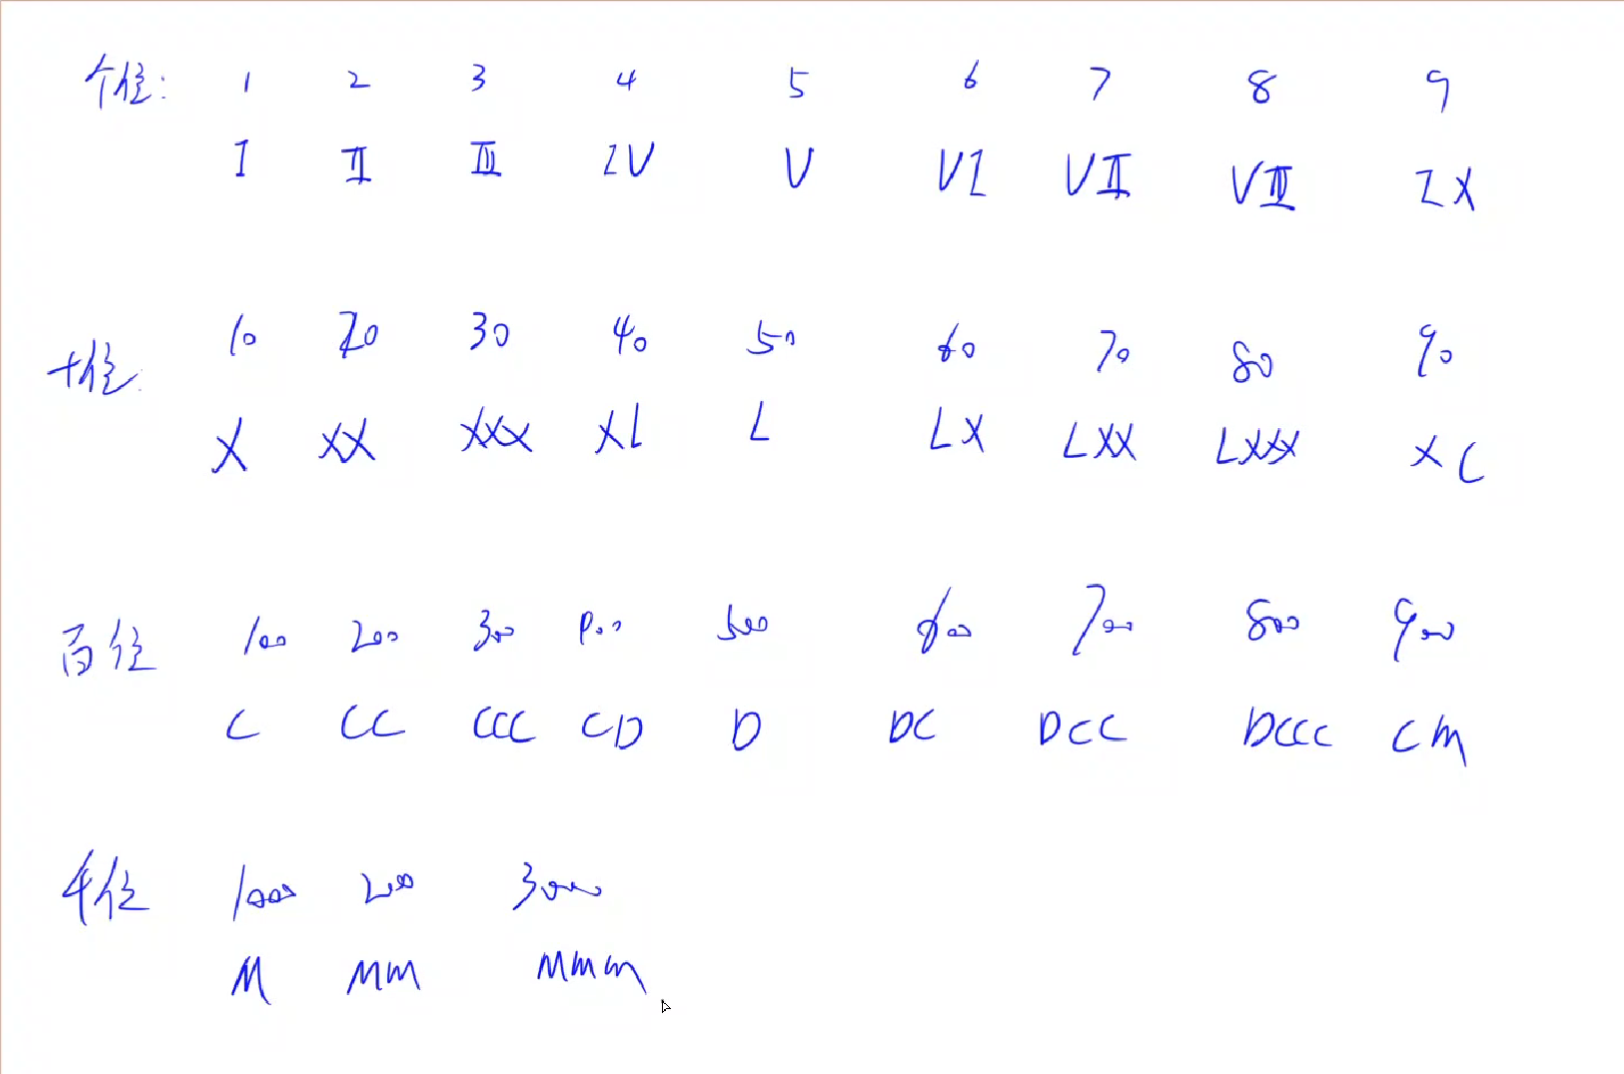 个位: 1 2 3 4 5 6 7 8 9
I II III IV V VI VII VIII IX
十位: 10 20 30 40 50 60 70 80 90
X XX XXX XL L LX LXX LXXX XC
百位 100 200 300 400 500 600 700 800 900
C CC CCC CD D DC DCC DCCC CM
千位 1000 2000 3000
M MM MMM